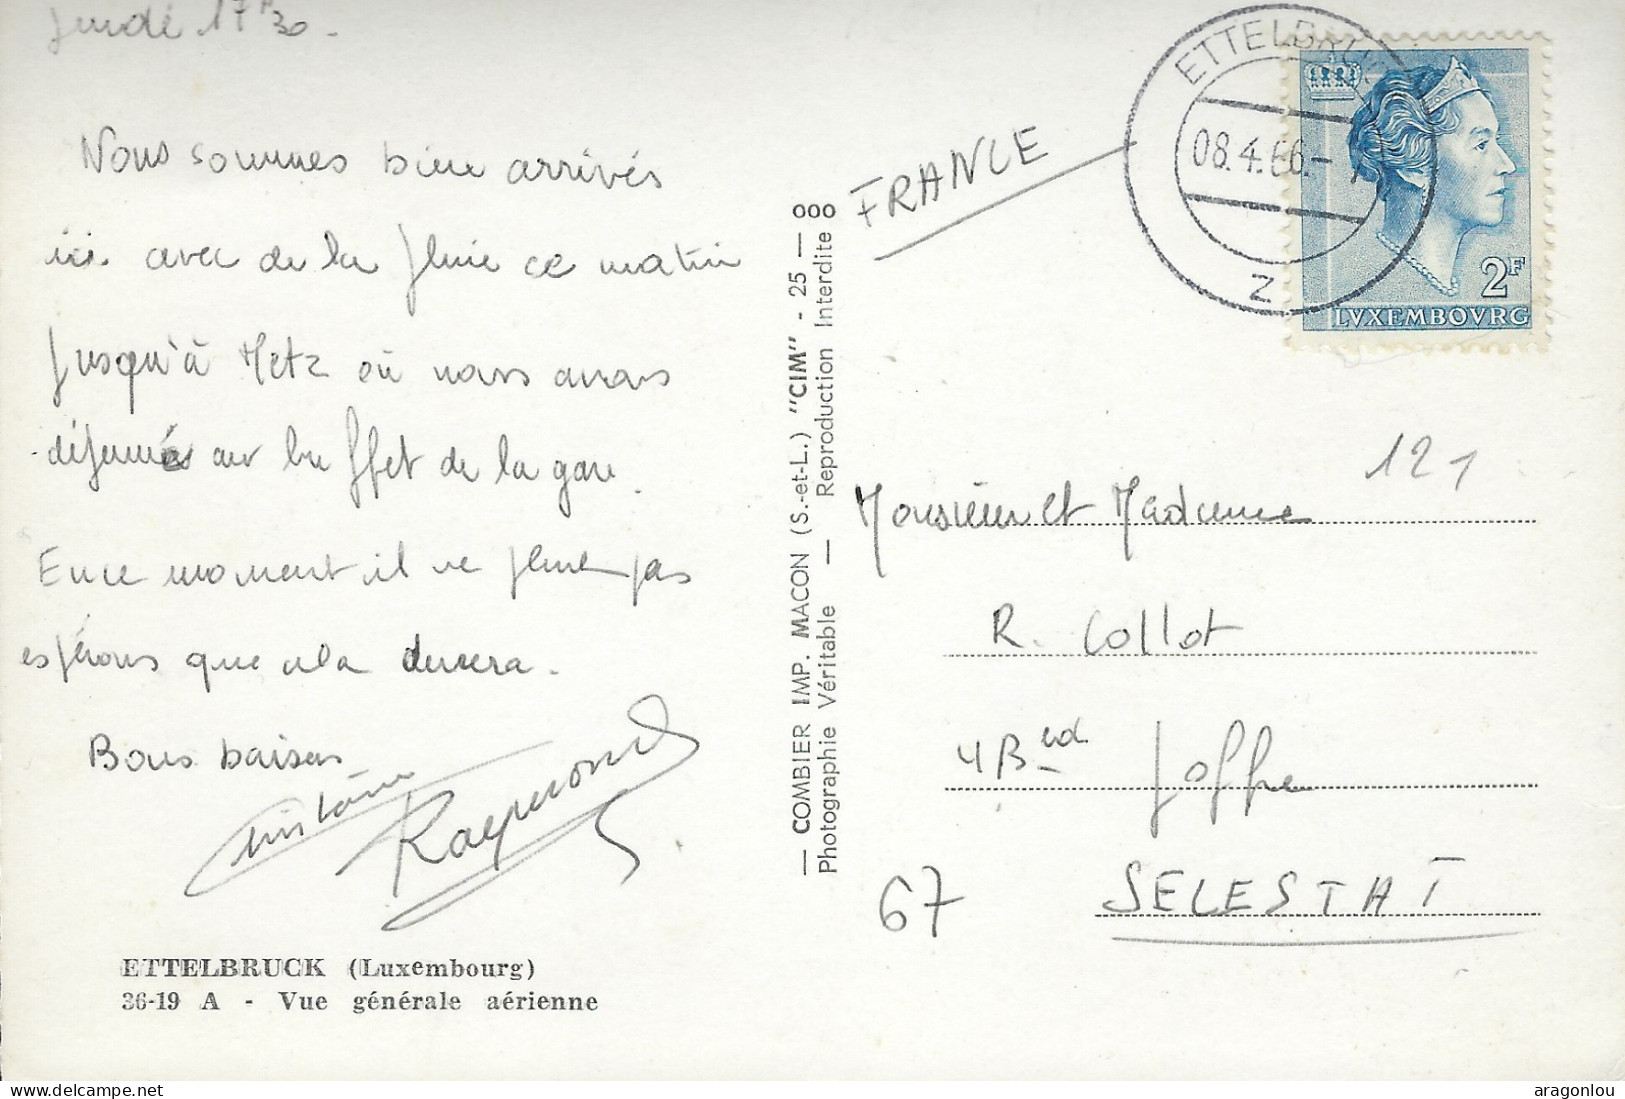 Jeudi 17h30.
Nous sommes bien arrivés
ici avec de la pluie ce matin
jusqu'à Metz où nous avons
déjeuné au buffet de la gare.
En ce moment il ne pleut pas
espérons que cela durera.
Bons baisers
Raymond
ETTELBRUCK (Luxembourg)
36-19 A - Vue générale aérienne
— COMBIER IMP. MACON (S.-et-L.) "CIM" - 25 — ooo
Photographie Véritable — Reproduction Interdite
FRANCE
ETTELBRUCK
08.4.66.-
Z
2F
LVXEMBOVRG
121
Monsieur et Madame
R. Collot
4 Bvd Joffre
67 SELESTAT
aragonlou